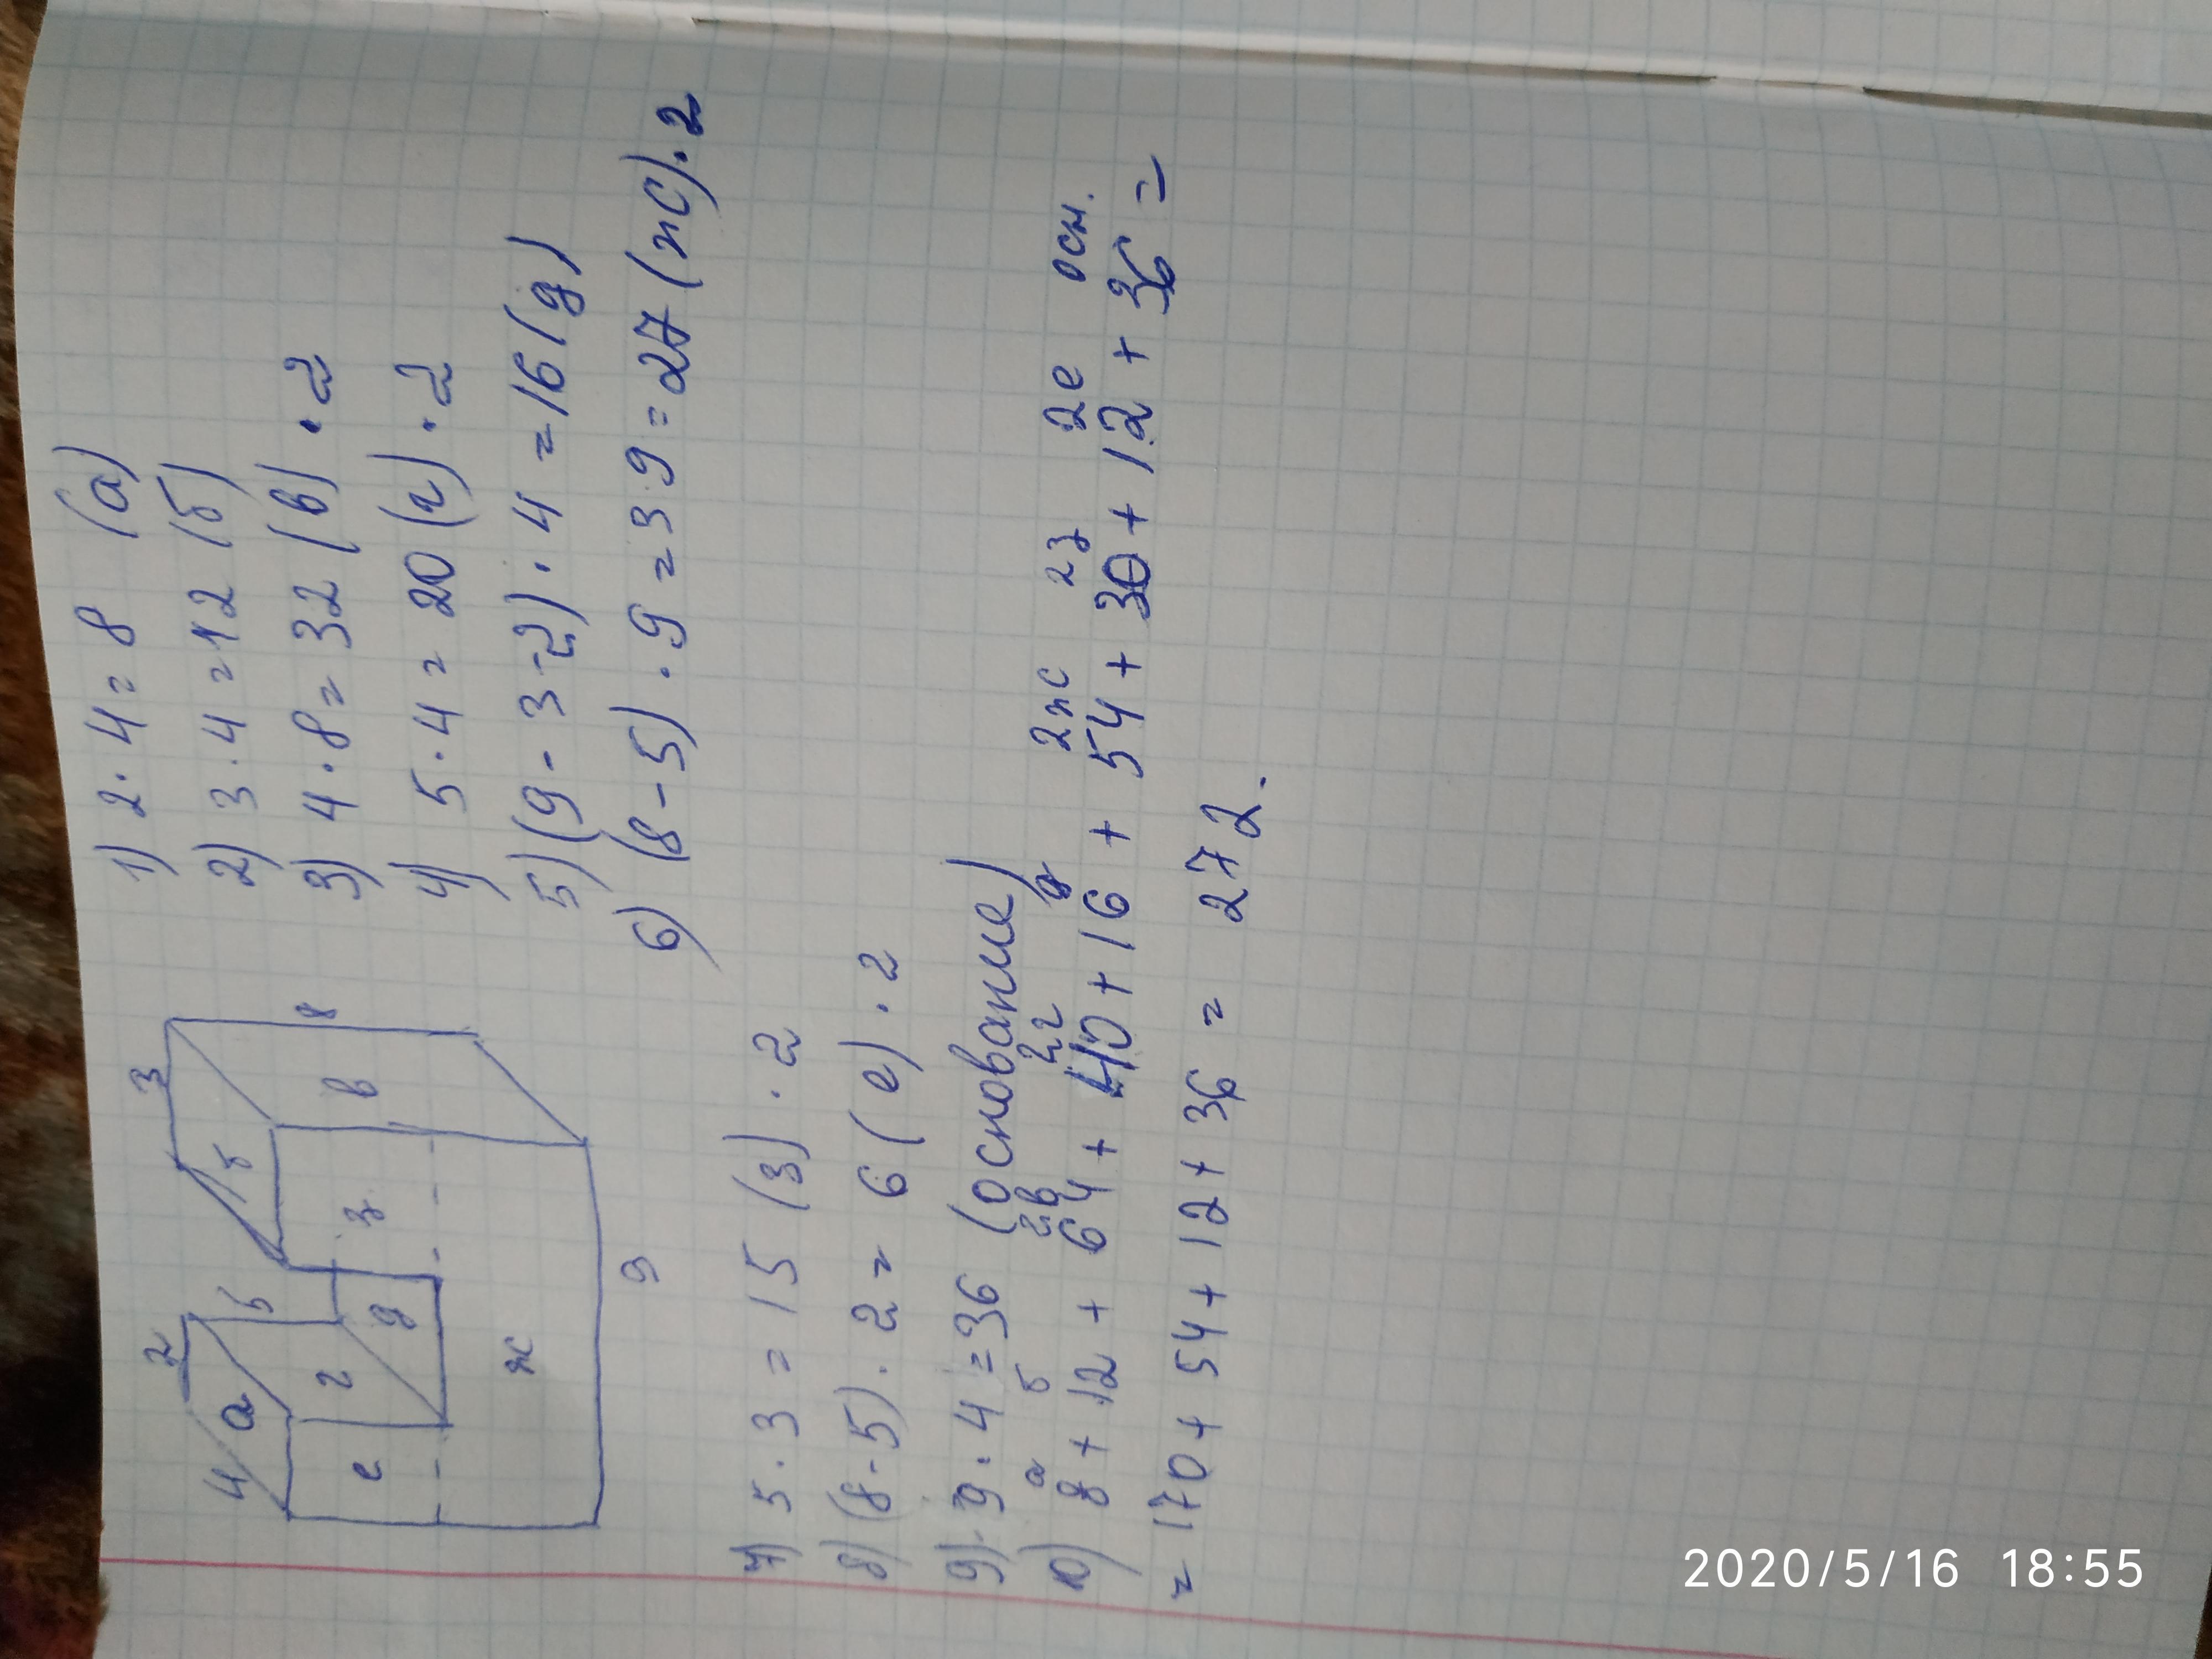 4 а 2 б б 3
е г д з в 8
ж
9
1) 2·4=8 (а)
2) 3·4=12 (б)
3) 4·8=32 (в) ·2
4) 5·4=20 (г) ·2
5) (9-3-2)·4=16 (д)
6) (8-5)·9=3·9=27 (ж)·2
7) 5·3=15 (з)·2
8) (8-5)·2=6 (е)·2
9) 9·4=36 (основание)
а б 2в 2г д 2ж 2з 2е осн.
10) 8+12+64+40+16+54+30+12+36=
=170+54+12+36=272.
2020/5/16 18:55